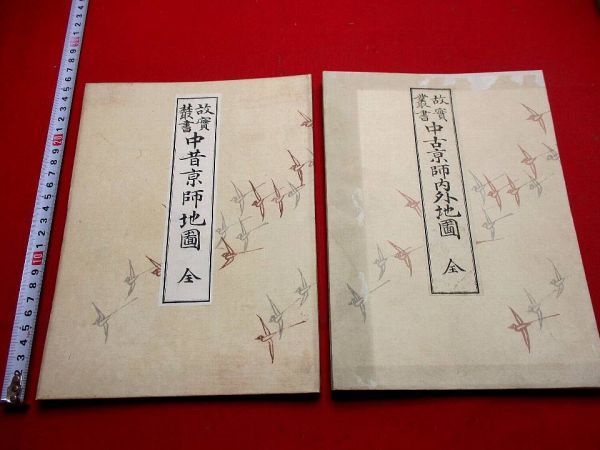 故實叢書
中昔京師地圖
全
故實叢書
中古京師内外地圖
全